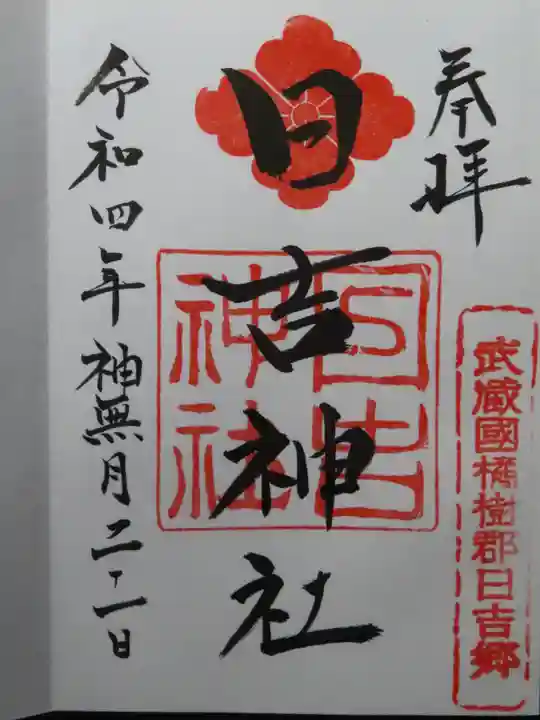 奉拝
武蔵國橘樹郡日吉郷
日吉神社
日吉神社
令和四年神無月二十一日